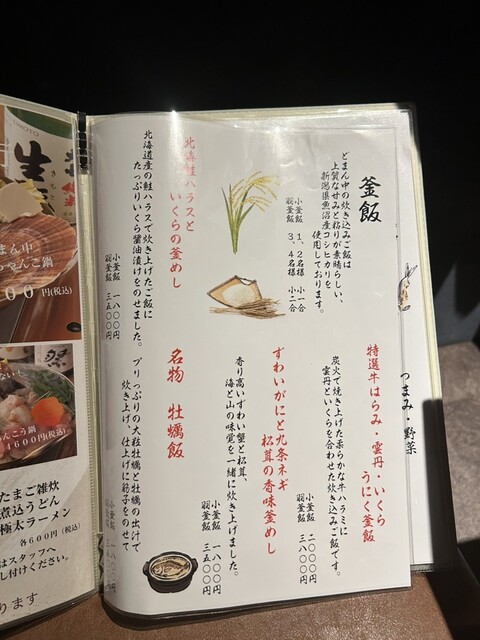 釜飯
どまん中の炊き込みご飯は
上質な甘みと粘りが素晴らしい、
新潟県魚沼産コシヒカリを
使用しております。
小釜飯 1、2名様 小一合
羽釜飯 3、4名様 小二合
北海鮭ハラスと
いくらの釜めし
北海道産の鮭ハラスで炊き上げたご飯に
たっぷりいくら醤油漬けをのせました。
小釜飯 一八〇〇円
羽釜飯 三五〇〇円
特選牛はらみ・雲丹・いくら
うにく釜飯
炭火で焼き上げた柔らかな牛ハラミに
雲丹といくらを合わせた炊き込みご飯です。
小釜飯 二〇〇〇円
羽釜飯 三八〇〇円
ずわいがにと九条ネギ
松茸の香味釜めし
香り高いずわい蟹と松茸、
海と山の味覚を一緒に炊き上げました。
小釜飯 一八〇〇円
羽釜飯 三五〇〇円
名物 牡蠣飯
プリっぷりの大粒牡蠣と牡蠣の出汁で
炊き上げ、仕上げに筋子をのせて
小釜飯 一八〇〇円
羽釜飯 三五〇〇円
つまみ・野菜
まん中
ゃんこ鍋
00円(税込)
んこう鍋
1600円(税込)
たまご雑炊
煮込うどん
極太ラーメン
各600円(税込)
はスタッフへ
し付けください。
ります